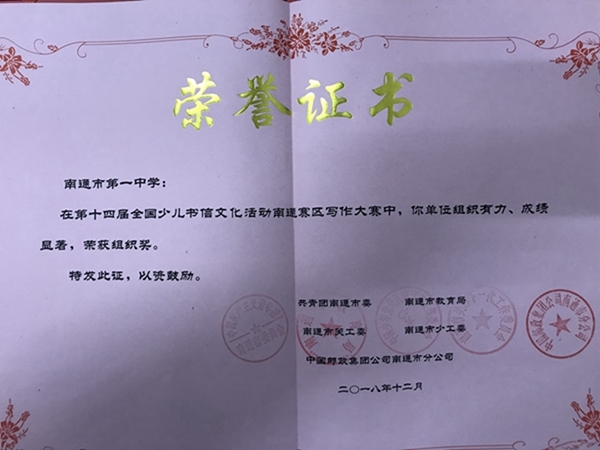 荣誉证书
南通市第一中学：
在第十四届全国少儿书信文化活动南通赛区写作大赛中，你单位组织有力、成绩
显著，荣获组织奖。
特发此证，以资鼓励。
共青团南通市委 南通市教育局
南通市文工委 南通市少工委
中国邮政集团公司南通市分公司
二〇一八年十二月
中国邮政集团公司南通市分公司